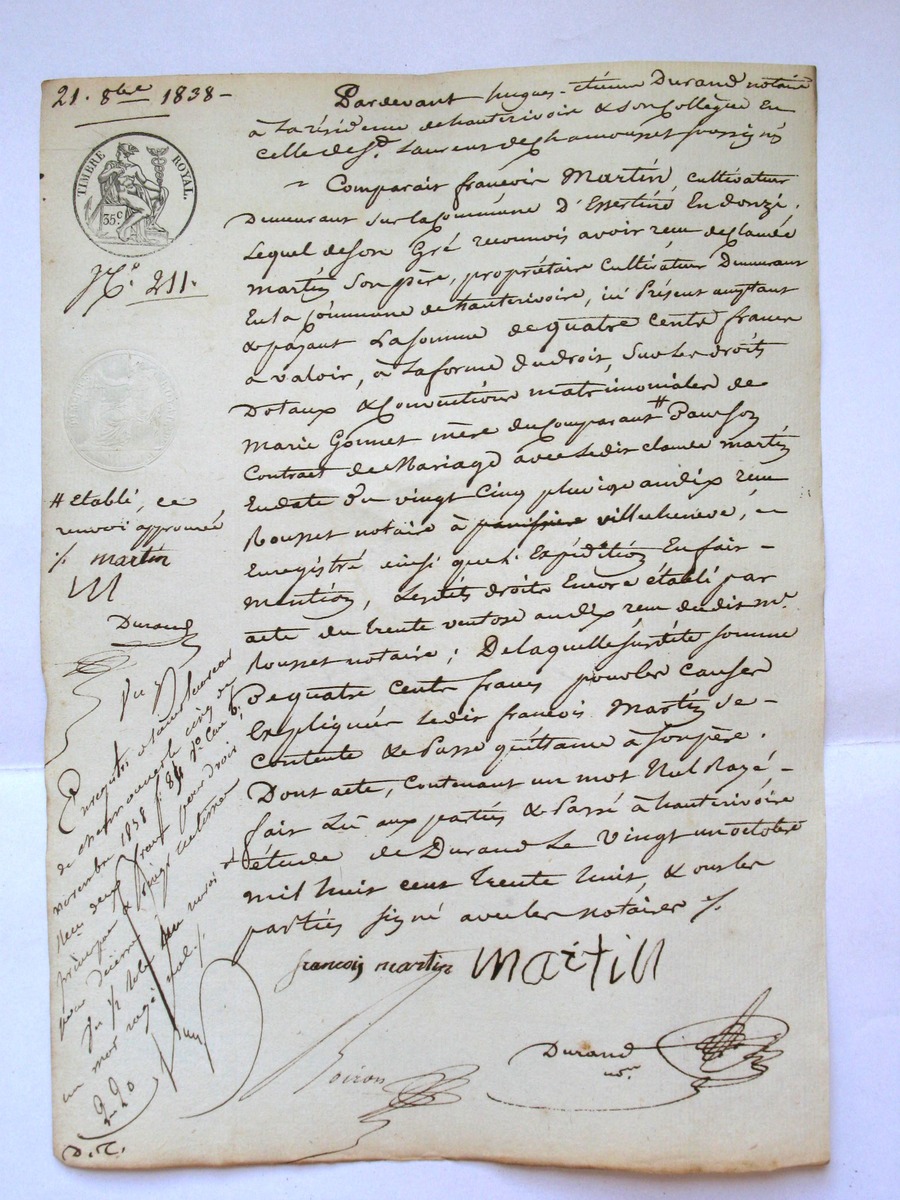 21. 8bre 1838 -
TIMBRE ROYAL.
35c
No. 211.
Pardevant hugues - étienne Durand notaire
à La résidence de hauterivoire & son Collègue En
celle de St. Laurent de chamousset soussignés
Comparait françois Martin, cultivateur
Demeurant sur la commune D'Essertine En donzi.
Lequel de son Gré reconnois avoir reçu de claude
martin son père, propriétaire cultivateur Demeurant
En la Commune de hauterivoire, ici Présent acceptant
& payant La somme de quatre cents francs
a valoir, à La forme du droit, sur les droits
Dotaux & conventions matrimoniales de
Marie Gonnet mère du comparant # Par son
Contract de Mariage avec ledit claude martin
En date du vingt cinq pluviose an dix reçu
Rousset notaire à panissière villechenève,
Enregistré ainsi que l'Expédition En fait -
mention, Lesdits droits Encore établi par
acte du trente ventose an dix reçu dudit Me.
Rousset notaire ; De laquelle susdite somme
De quatre cents francs pour les causes
Expliquées ledit françois Martin se -
Contente & Passe quittance à son père.
Dont acte, contenant un mot Nul Rayé -
fait Lu aux parties & Passé à hauterivoire
étude de Durand Le vingt un octobre
mil huit cent trente huit, & ont les
parties signé avec les notaires ./.
# Etabli, ce
renvoi approuvé
./. martin
m
Durand
Enregistré à saint Laurent
de chamousset cinq
novembre 1838 f. 84 Ro Case 6,
Reçu deux francs pour droit
principal & vingt centimes
pour décime
un renvoi &
un mot rayé nul ./.
2-20
D. R.
françois martin martin
Poiron
Durand
nore